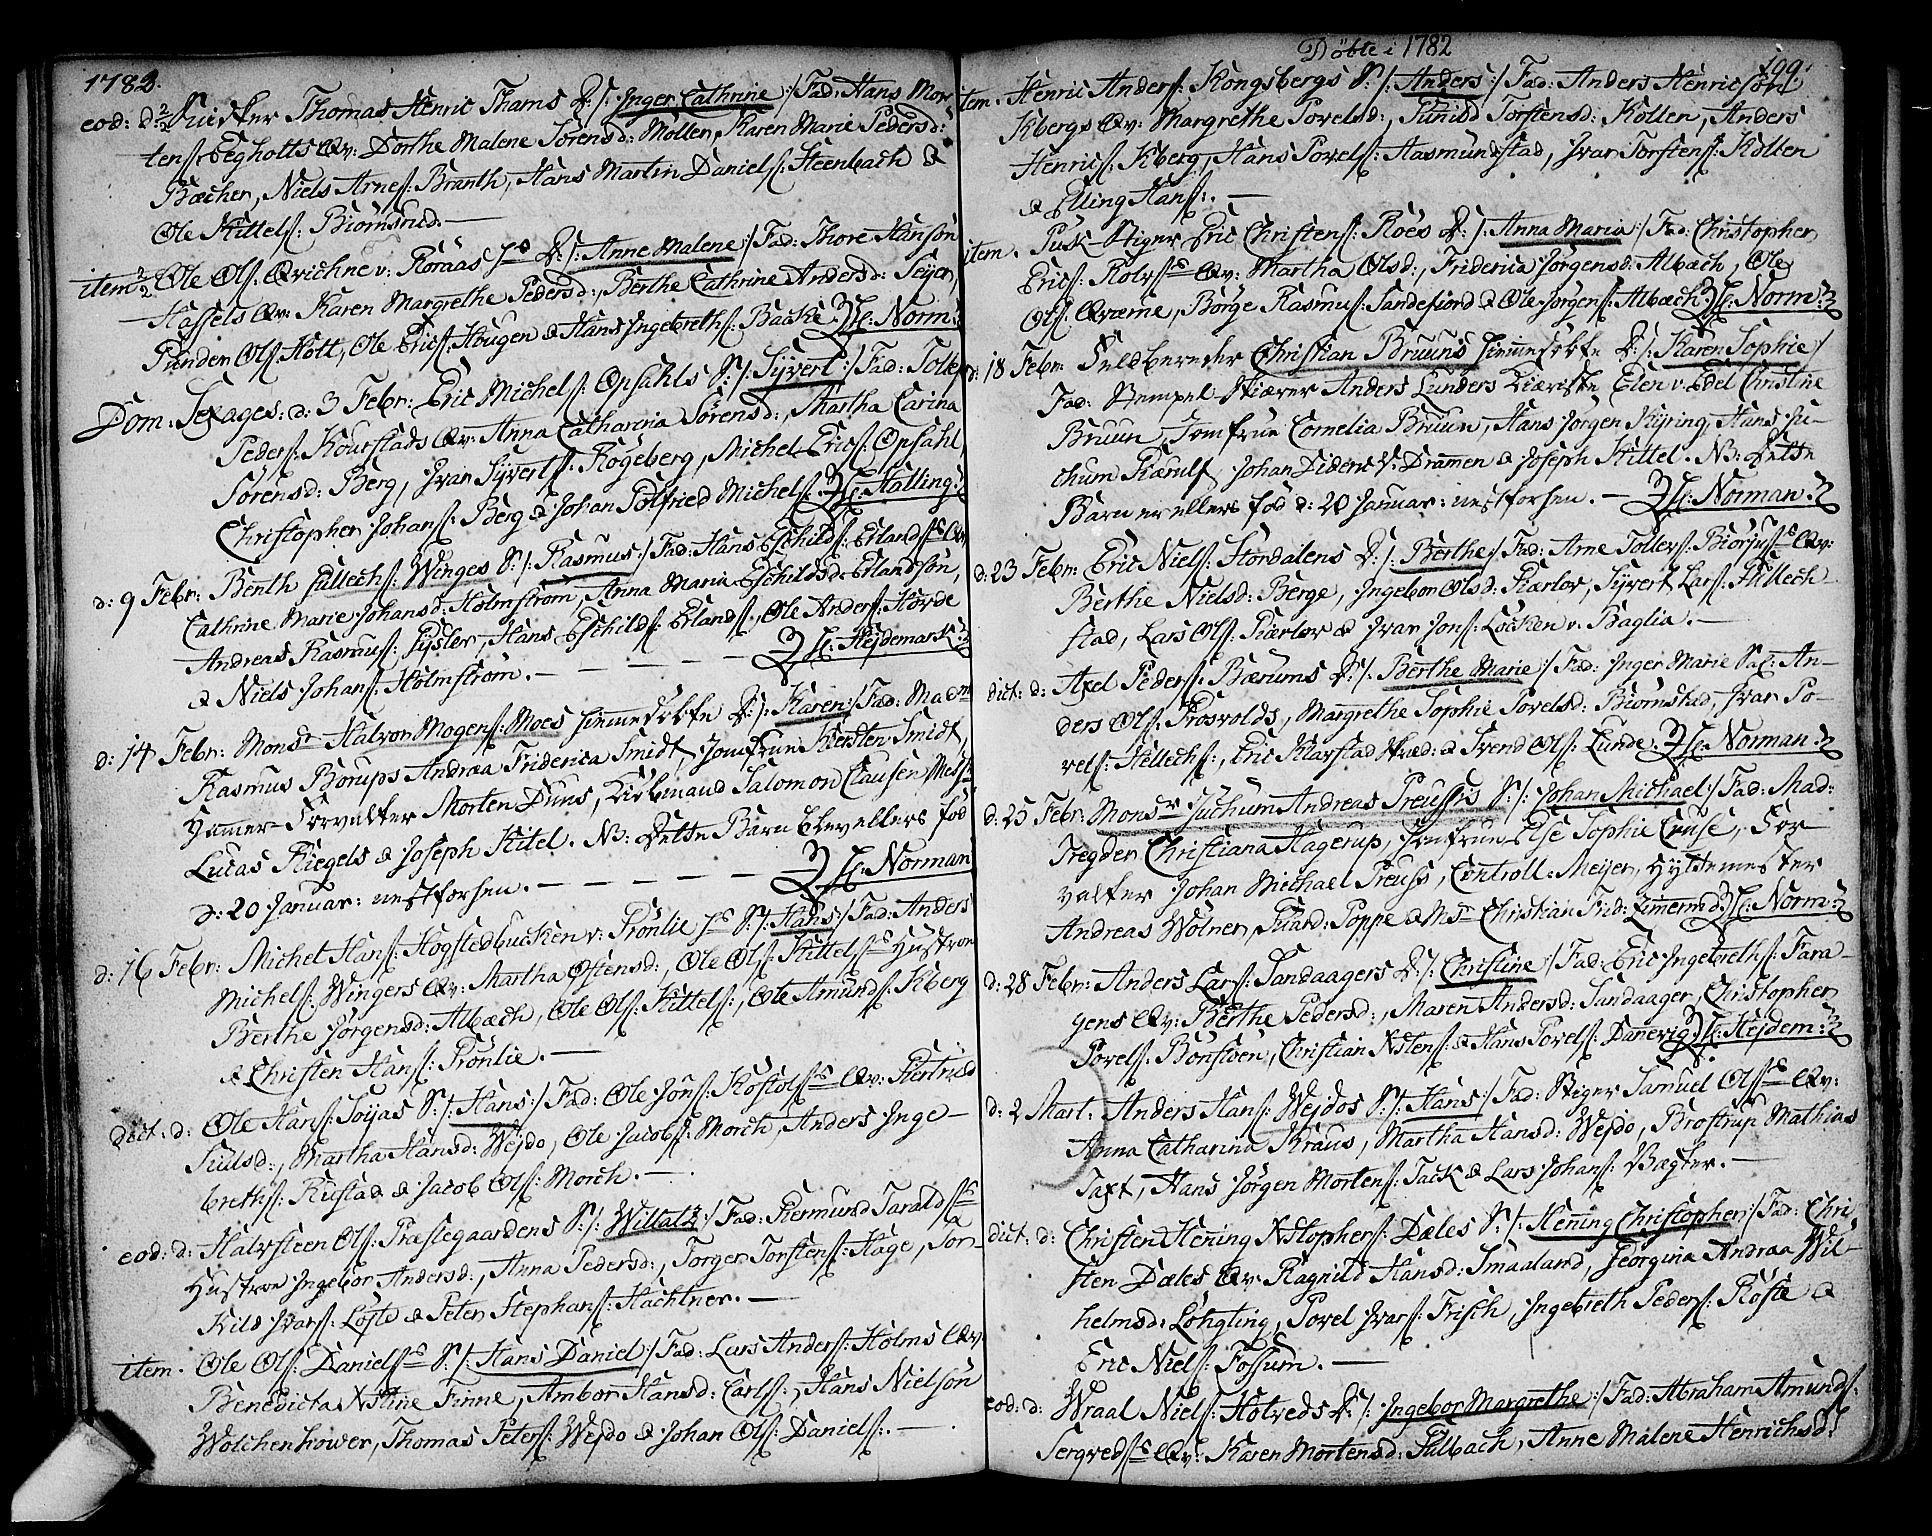 1782.
eod: d: 2/2 Thomas Henric Thams D:/: Inger Cathrine :/ Fad: Hans Mor
tens: Segholts Qv: Dorthe Malene Sörensd: Moller, Karen Marie Pedersd:
Bæcher, Niels Arnes: Branth, Hans Martin Daniels: Steenbach &
Ole Kittels: Biömsrud. —
item 2/2 Ole Ols: Qvichne v: Roraas D:/: Anne Malene :/ Fad: Thore Hanson
Hassels Qv: Karen Margrethe Pedersd:, Berthe Cathrine Andersd: Seyer,
Gunden Ols: Kott, Ole Erics: Hougen & Hans Ingebreths: Backe. H: Norm:
Dom: Sexages: d: 3 Febr: Eric Michels: Opsahls S:/: Syvert :/ Fad: Tollef
Peders: Kourstads Qv: Anna Catharina Sörensd:, Martha Carina
Sörensd: Berg, Ivar Syverts: Rogeberg, Michel Erics: Opsahl,
Christopher Johans: Berg & Johan Gotfried Michels: H: Halling:
d: 9 Febr: Benth Gullechs: Winges S:/: Rasmus :/ Fad: Hans Eschilds: Erlands: Qv:
Cathrine Marie Johansd: Holmstrom, Anna Maria Eschildsd: Erlandson,
Andreas Rasmus: Gysler, Hans Eschilds: Erlands:, Ole Anders: Horde
& Niels Johans: Holmstrom. — — — — — H: Hejdemark:
d: 14 Febr: Monsr Halvor Mogens: Moes hiemmedöbte D:/: Karen :/ Fad: Madm
Rasmus Borups Andræa Friderica Smidt, Jomfrue Kiersten Smidt,
Hamer-Forvalter Morten Duns, Salomon Clausen,
Lucas Riegels & Joseph Kitel. NB: dette Barn blev ellers föd
d: 20 Januar: nestforhen. — — — — — H: Norman
d: 16 Febr: Michel Hans: Hogstedbucken v: Grönlie S:/: Hans :/ Fad: Anders
Michels: Wingers Qv: Martha Ostensd:, Ole Ols: Kittels: Hustroe
Berthe Jörgensd: Albæch, Ole Ols: Kittels:, Ole Amunds: Kberg
& Christen Hans: Grönlie. —
dict: d: Ole Hans: Soijas S:/: Hans :/ Fad: Ole Jöns: Kostols: Qv: Giertrud
Gulsd:, Martha Hansd: Wejdo, Ole Jacobs: Morch, Anders Inge-
breths: Rustad & Jacob Ols: Morch. —
eod: d: Halvsteen Ols: Præstegaardens S:/: Willatz :/ Fad: Giermund Taralds:
Hustroe Ingebor Andersd:, Anna Pedersd:, Torger Torstens: Hage, Tor-
Kild Ivars: Lofte & Peter Stephans: Hachtner. —
item. Ole Ols: Daniels: S:/: Hans Daniel :/ Fad: Lars Anders: Holms Qv:
Benedicta Xstine Finne, Ambor Hansd: Carls:, Hans Nielson
Wolchenhower, Thomas Peters: Wejdo & Johan Ols: Daniels:. —
Döbte i 1782
199.
item. Henric Anders: Kongsbergs S:/: Anders :/ Fad: Anders Henricson
Kbergs Qv: Margrethe Povelsd:, Gunild Torstensd: Kollen, Anders
Henrics: Kberg, Hans Povels: Aasmundstad, Ivar Torstens: Kollen
& Elling Hans:. —
item. Puk-Stiger Eric Christens: Roes D:/: Anna Maria :/ Fad: Christopher
Erics: Rolvs: Qv: Martha Olsd:, Friderica Jörgensd: Albæch, Ole
Ols: Qværne, Börge Rasmus: Sandefiord & Ole Jörgens: Albæch. H: Norm:
d: 18 Febr: Feldbereder Christian Bruuns hiemmedöbte D:/: Karen Sophie :/
Fad: Stempel-Skiærer Anders Lunders Kiereste Elen v. Edel Christine
Bruun, Jomfrue Cornelia Bruun, Hans Jörgen Kyring, Hans Ju-
chum Giærulf, Johan Diderc V: Dramen & Joseph Kittel. NB: dette
Barn er ellers föd d: 20 Januar: nestforhen. — H: Norman:
d: 23 Febr: Eric Niels: Stordalens D:/: Berthe :/ Fad: Arne Tollevs: Biörjus: Qv:
Berthe Nielsd: Berge, Ingebor Olsd: Giærlov, Syvert Lars: Hellech-
stad, Lars Ols: Giærlov & Ivar Jons: Löcken v: Baglia. —
dict: d: Axel Peders: Bærums D:/: Berthe Marie :/ Fad: Inger Marie Sal: An-
ders Ols: Frosvolds, Margrethe Sophie Povelsd: Biömstad, Ivar Po-
vels: Hellechs:, Eric Klavstad & Svend Ols: Lunde. H: Norman:
d: 25 Febr: Monsr Juchum Andreas Preussis S:/: Johan Michael :/ Fad: Mad:
Tregder Christiana Hagerup, Jomfrue Else Sophie Cruse, For-
valter Johan Michael Preuss, Controll: Meijer, Hyttemester
Andreas Wölner, Guard: Poppe & Mr Christian Frid: Zimerm: H: Norm:
d: 28 Febr: Anders Lars: Sandaagers D:/: Christine :/ Fad: Eric Ingebreths: Fara-
gens Qv: Berthe Pedersd:, Maren Andersd: Sandaager, Christopher
Povels: Bönswen, Christian Xstens: & Hans Povels: Danevig. H: Hejdem:
d: 2 Mart. Anders Hans: Wejdos S:/: Hans :/ Fad: Stiger Samuel Ols: Qv:
Anna Catharina Kraus, Martha Hansd: Wejdo, Brostrup Mathias
Taxt, Hans Jörgen Mortens: Tack & Lars Johans: Vagter. —
dict: d: Christen Hening Xstophers: Dæles S:/: Hening Christopher :/ Fad: Chri-
sten Dæles Qv: Ragnild Hansd: Smaaland, Georgina Andræa Wil-
helmsd: Löhgting, Povel Ivars: Frisch, Ingebreth Peders: Floste &
Eric Niels: Fossum. —
eod: d: Wraal Niels: Holveds D:/: Ingebor Margrethe :/ Fad: Abraham Amunds:
Sergveds: Qv: Karen Mortensd: Galbach, Anne Malene Henrichsd: